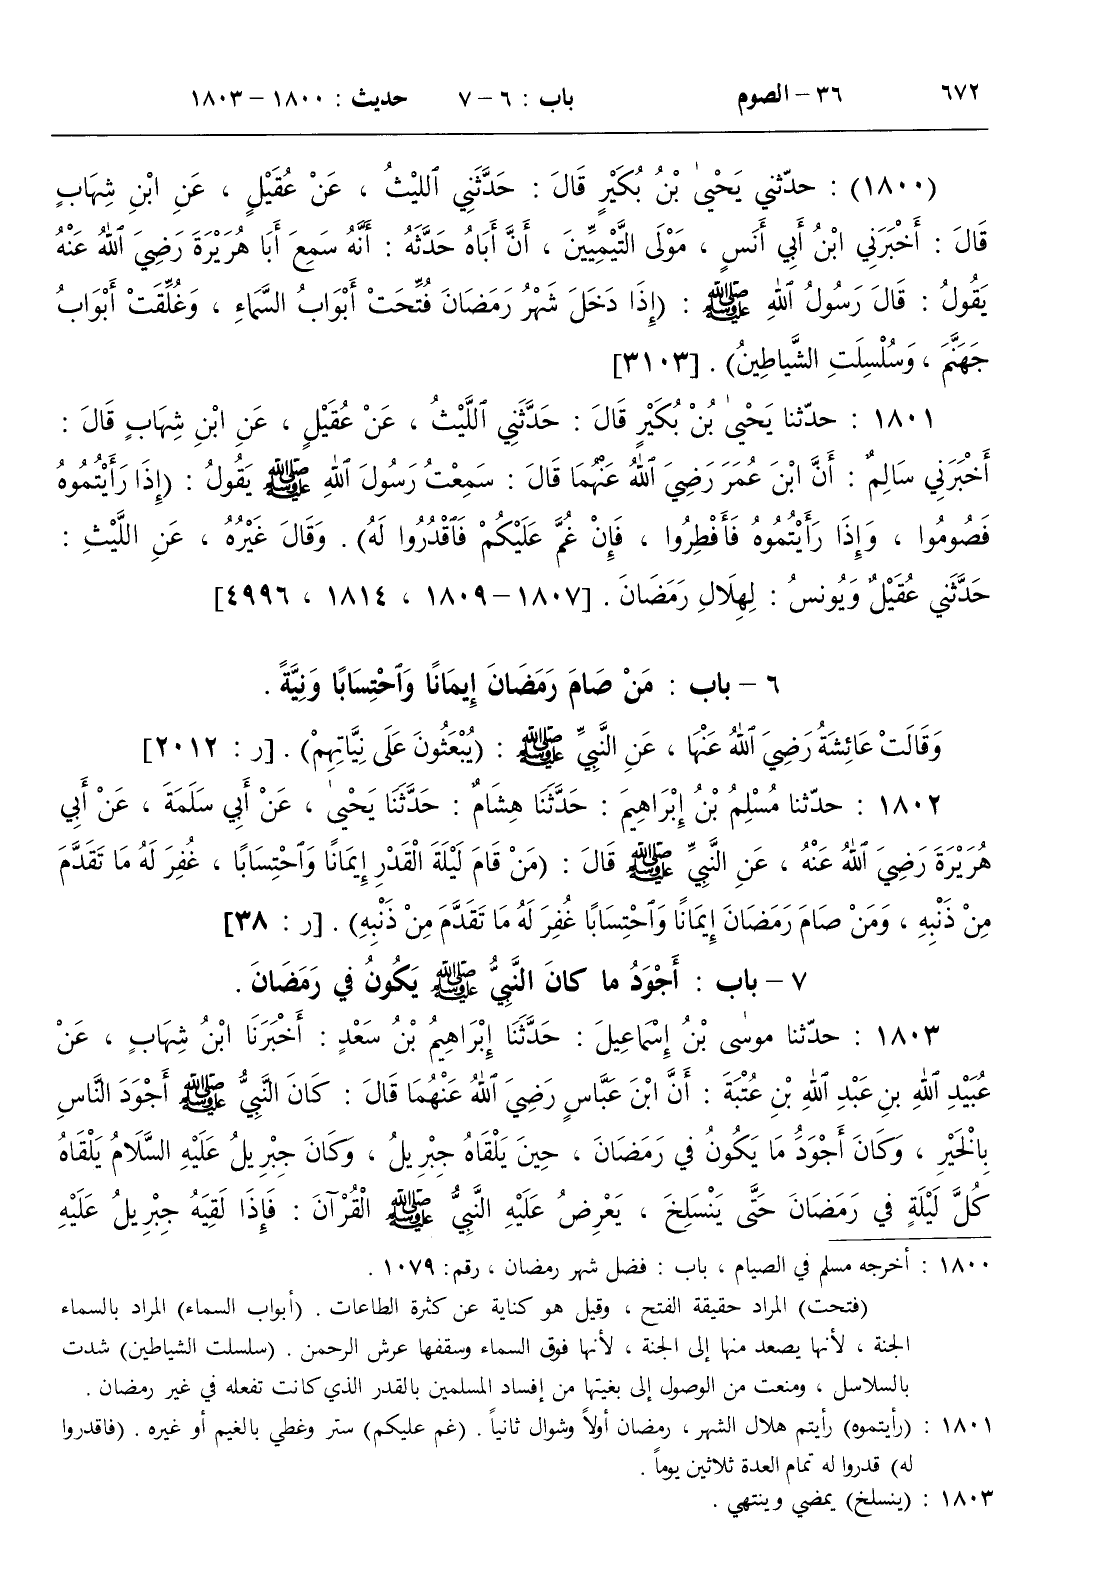 ٦٧٢ ٣٦ – الصوم باب : ٦ – ٧ حديث : ١٨٠٠ – ١٨٠٣
(١٨٠٠) : حدّثني يَحْيىٰ بْنُ بُكَيْرٍ قَالَ : حَدَّثَنِي ٱلليْثُ ، عَنْ عُقَيْلٍ ، عَنِ ابْنِ شِهَابٍ
قَالَ : أَخْبَرَنِي ابْنُ أَبِي أَنَسٍ ، مَوْلَى التَّيْمِيِّينَ ، أَنَّ أَبَاهُ حَدَّثَهُ : أَنَّهُ سَمِعَ أَبَا هُرَيْرَةَ رَضِيَ ٱللهُ عَنْهُ
يَقُولُ : قَالَ رَسُولُ ٱللهِ ﷺ : (إِذَا دَخَلَ شَهْرُ رَمَضَانَ فُتِّحَتْ أَبْوَابُ السَّمَاءِ ، وَغُلِّقَتْ أَبْوَابُ
جَهَنَّمَ ، وَسُلْسِلَتِ الشَّيَاطِينُ) . [٣١٠٣]
١٨٠١ : حدّثنا يَحْيىٰ بْنُ بُكَيْرٍ قَالَ : حَدَّثَنِي ٱللَّيْثُ ، عَنْ عُقَيْلٍ ، عَنِ ابْنِ شِهَابٍ قَالَ :
أَخْبَرَنِي سَالِمٌ : أَنَّ ابْنَ عُمَرَ رَضِيَ ٱللهُ عَنْهُمَا قَالَ : سَمِعْتُ رَسُولَ ٱللهِ ﷺ يَقُولُ : (إِذَا رَأَيْتُمُوهُ
فَصُومُوا ، وَإِذَا رَأَيْتُمُوهُ فَأَفْطِرُوا ، فَإِنْ غُمَّ عَلَيْكُمْ فَٱقْدُرُوا لَهُ) . وَقَالَ غَيْرُهُ ، عَنِ اللَّيْثِ :
حَدَّثَنِي عُقَيْلٌ وَيُونسُ : لِهِلَالِ رَمَضَانَ . [١٨٠٧–١٨٠٩ ، ١٨١٤ ، ٤٩٩٦]
٦ – باب : مَنْ صَامَ رَمَضَانَ إِيمَانًا وَٱحْتِسَابًا وَنِيَّةً .
وَقَالَتْ عَائِشَةُ رَضِيَ ٱللهُ عَنْهَا ، عَنِ النَّبِيِّ ﷺ : (يُبْعَثُونَ عَلَى نِيَّاتِهِمْ) . [ر : ٢٠١٢]
١٨٠٢ : حدّثنا مُسْلِمُ بْنُ إِبْرَاهِيمَ : حَدَّثَنَا هِشَامٌ : حَدَّثَنَا يَحْيىٰ ، عَنْ أَبِي سَلَمَةَ ، عَنْ أَبِي
هُرَيْرَةَ رَضِيَ ٱللهُ عَنْهُ ، عَنِ النَّبِيِّ ﷺ قَالَ : (مَنْ قَامَ لَيْلَةَ الْقَدْرِ إِيمَانًا وَٱحْتِسَابًا ، غُفِرَ لَهُ مَا تَقَدَّمَ
مِنْ ذَنْبِهِ ، وَمَنْ صَامَ رَمَضَانَ إِيمَانًا وَٱحْتِسَابًا غُفِرَ لَهُ مَا تَقَدَّمَ مِنْ ذَنْبِهِ) . [ر : ٣٨]
٧ – باب : أَجْوَدُ ما كانَ النَّبِيُّ ﷺ يَكُونُ في رَمَضَانَ .
١٨٠٣ : حدّثنا موسٰى بْنُ إِسْمَاعِيلَ : حَدَّثَنَا إِبْرَاهِيمُ بْنُ سَعْدٍ : أَخْبَرَنَا ابْنُ شِهَابٍ ، عَنْ
عُبَيْدِ ٱللهِ بنِ عَبْدِ ٱللهِ بْنِ عُتْبَةَ : أَنَّ ابْنَ عَبَّاسٍ رَضِيَ ٱللهُ عَنْهُمَا قَالَ : كَانَ النَّبِيُّ ﷺ أَجْوَدَ النَّاسِ
بِالْخَيْرِ ، وَكَانَ أَجْوَدُ مَا يَكُونُ فِي رَمَضَانَ ، حِينَ يَلْقَاهُ جِبْرِيلُ ، وَكَانَ جِبْرِيلُ عَلَيْهِ السَّلَامُ يَلْقَاهُ
كُلَّ لَيْلَةٍ فِي رَمَضَانَ حَتَّى يَنْسَلِخَ ، يَعْرِضُ عَلَيْهِ النَّبِيُّ ﷺ الْقُرْآنَ : فَإِذَا لَقِيَهُ جِبْرِيلُ عَلَيْهِ
١٨٠٠ : أخرجه مسلم في الصيام ، باب : فضل شهر رمضان ، رقم: ١٠٧٩ .
(فتحت) المراد حقيقة الفتح ، وقيل هو كناية عن كثرة الطاعات . (أبواب السماء) المراد بالسماء
الجنة ، لأنها يصعد منها إلى الجنة ، لأنها فوق السماء وسقفها عرش الرحمن . (سلسلت الشياطين) شدت
بالسلاسل ، ومنعت من الوصول إلى بغيتها من إفساد المسلمين بالقدر الذي كانت تفعله في غير رمضان .
١٨٠١ : (رأيتموه) رأيتم هلال الشهر ، رمضان أولاً وشوال ثانياً . (غم عليكم) ستر وغطي بالغيم أو غيره . (فاقدروا
له) قدروا له تمام العدة ثلاثين يوماً .
١٨٠٣ : (ينسلخ) يمضي وينتهي .